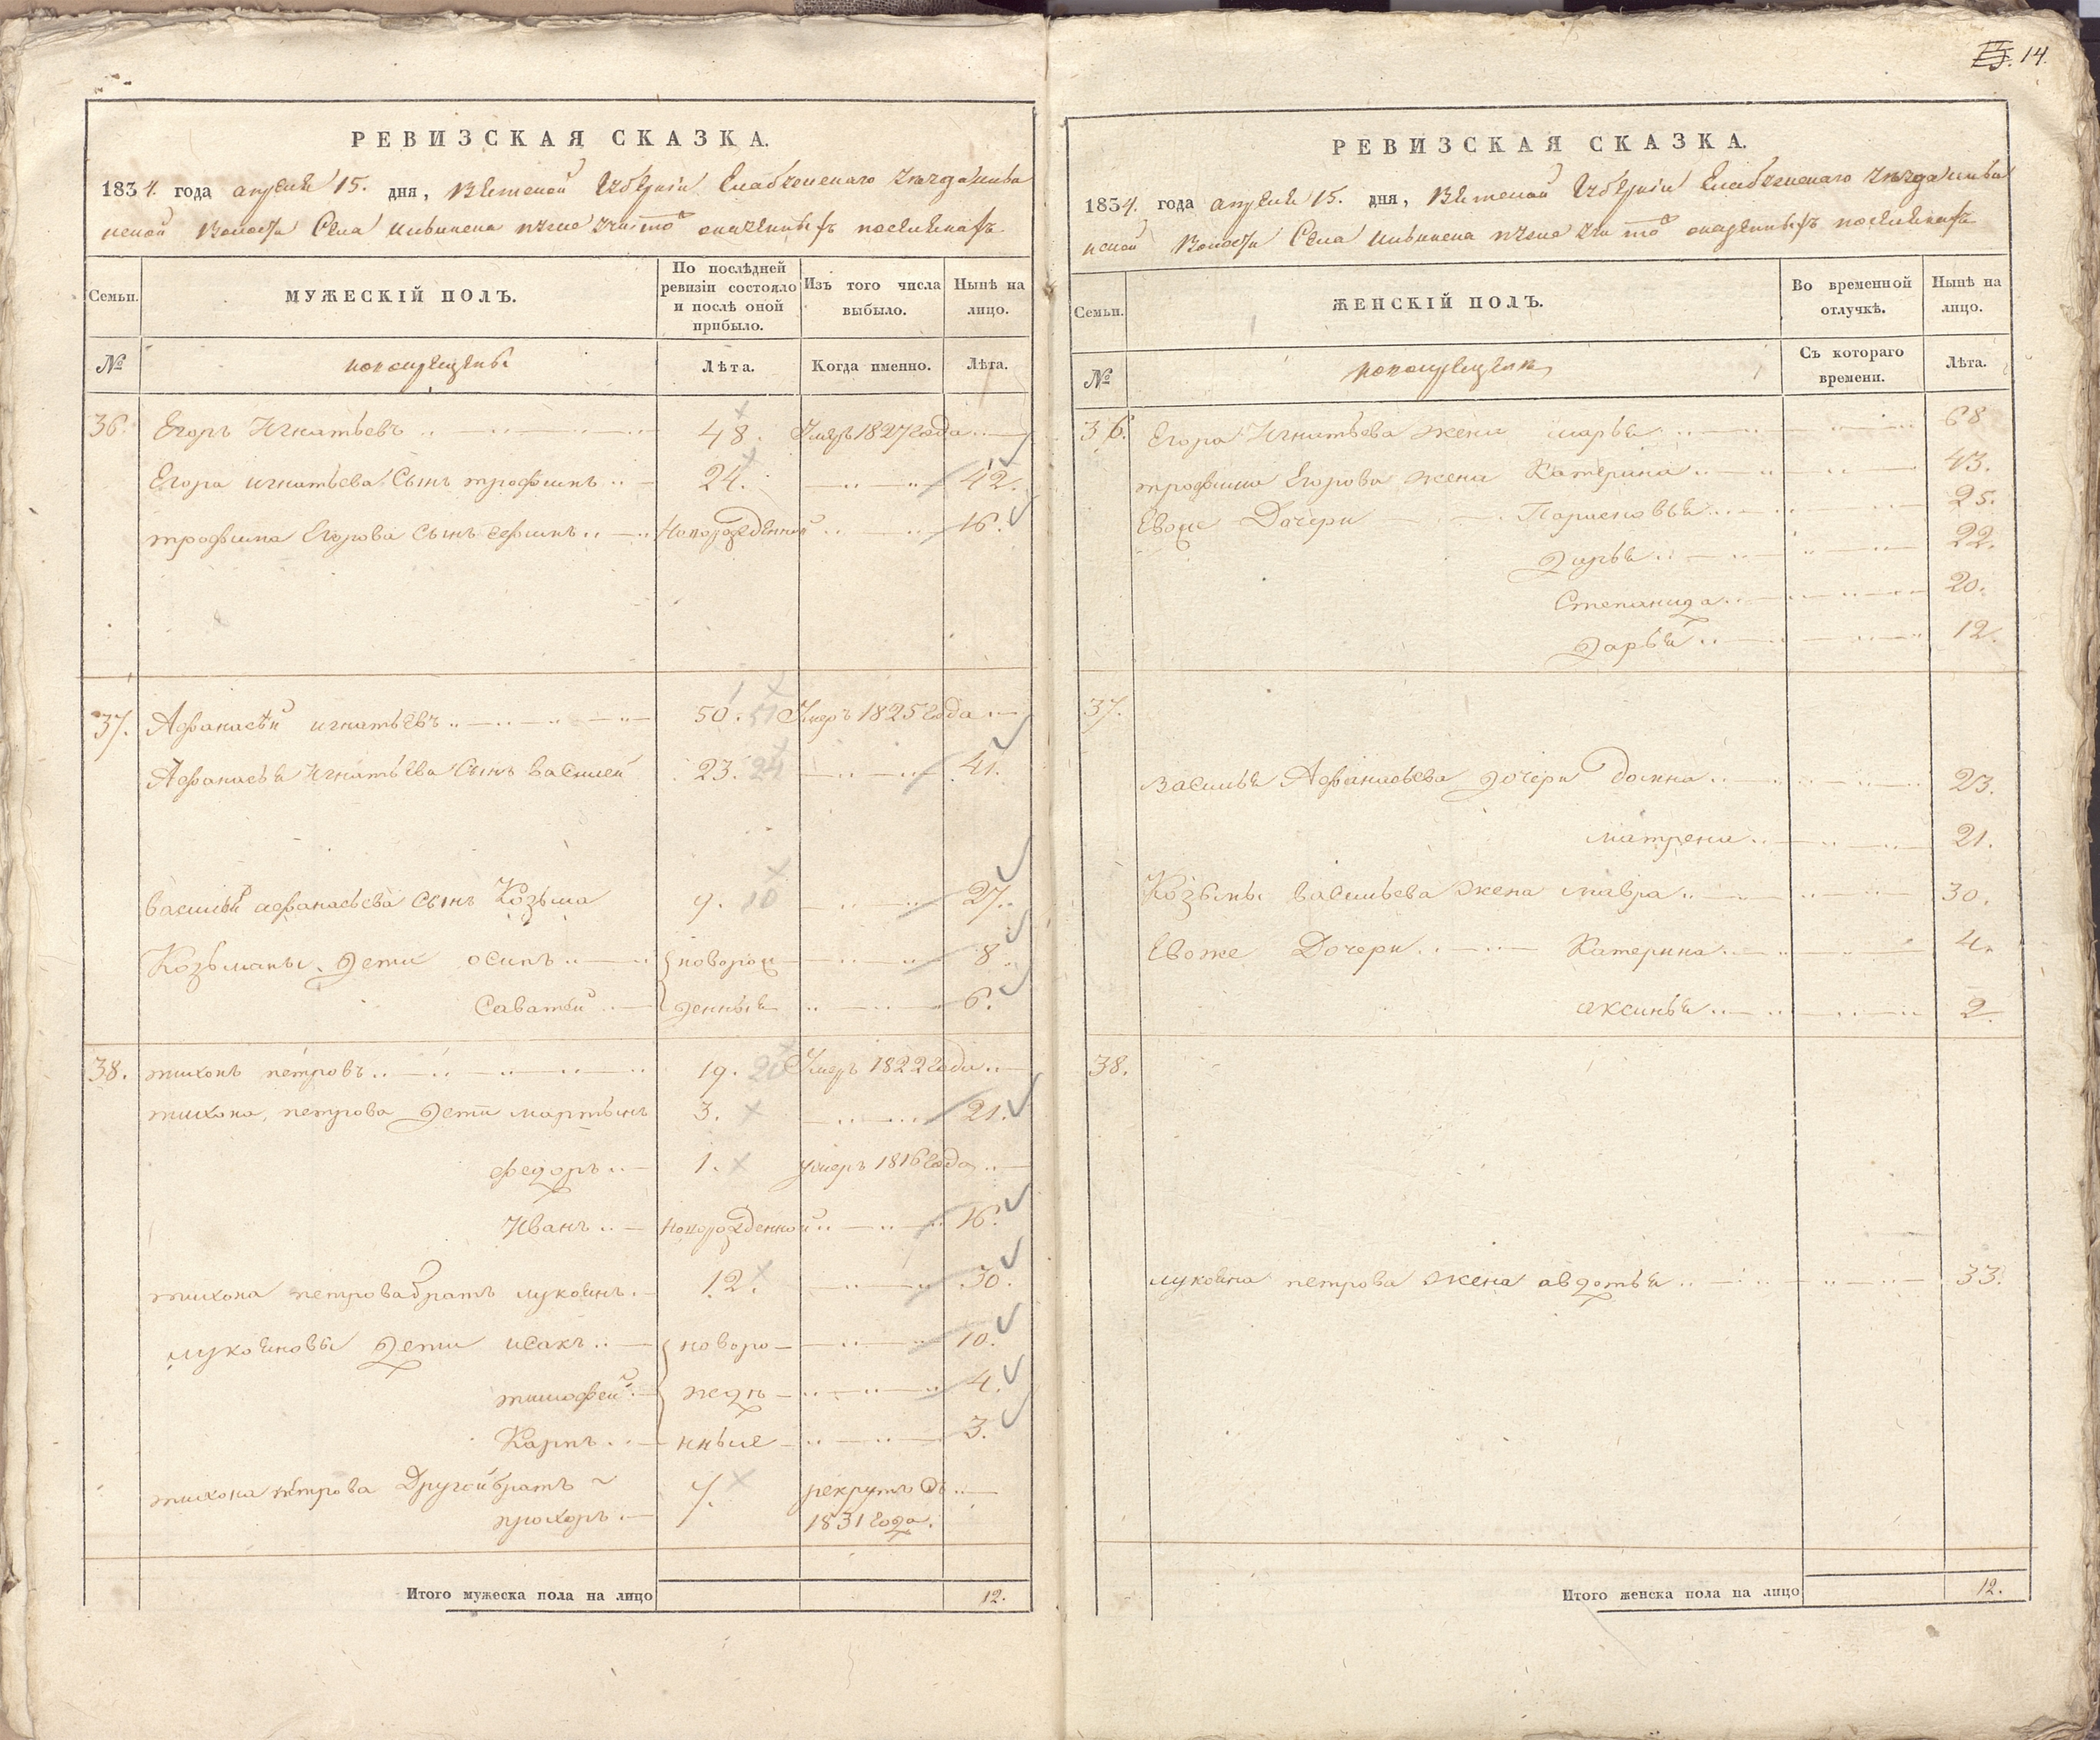 РЕВИЗСКАЯ СКАЗКА.
1834. года апреля 15. дня, Вятской Губернии Елабужского уезда
волости Села
Семьи.
МУЖЕСКІЙ ПОЛЪ.
По послѣдней ревизіи состояло и послѣ оной прибыло.
Изъ того числа выбыло.
Нынѣ на лицо.
№
новокрещены
Лѣта.
Когда именно.
Лѣта.
36. Егоръ Игнатьевъ 48. Умеръ 1827 года
Егора игнатьева Сынъ трофимъ 24. 42.
трофима Егорова сынъ ефимъ Новорожденной 16.
37. Афанасѣй игнатьевъ 50. 51 Умеръ 1825 года
Афанасья Игнатьева Сынъ василей 23. 24 41.
василья афанасьева сынъ Козьма 9. 10 27.
Козьмины дети осипъ новорож 8
Саватей денныя 6.
38. тихонъ петровъ 19. 20 Умеръ 1822 года
тихона петрова дети мартынъ 3. 21.
федоръ 1. умеръ 1816 года
Иванъ Новорожденной 16.
тихона петрова братъ лукоянъ 12. 30.
лукояновы дети исакъ новоро 10.
тимофей жедн 4.
Карпъ нныя 3.
тихона петрова Другой братъ 7. рекрутъ съ
прохоръ 1831 года.
Итого мужеска пола на лицо 12.
13. 14.
РЕВИЗСКАЯ СКАЗКА.
1834. года апреля 15. дня, Вятской Губернии Елабужского уезда
волости Села
Семьи.
ЖЕНСКІЙ ПОЛЪ.
Во временной отлучкѣ.
Нынѣ на лицо.
№
новокрещены
Съ котораго времени.
Лѣта.
36. Егора Игнатьева жена марья 68
трофима Егорова жена Катерина 43.
Евоже Дочери Парасковья 25.
Дарья 22.
Степанида 20.
дарья 12.
37.
василья Афанасьева дочери домна 23.
матрена 21.
Козьмы васильева жена мавра 30.
Евоже Дочери Катерина 4.
аксинья 2.
38.
лукояна петрова жена авдотья 33.
Итого женска пола на лицо 12.